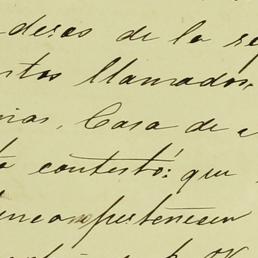 deros de la re
stos llamados,
nias, Casa de a
to contestó: que
inco pertenecen